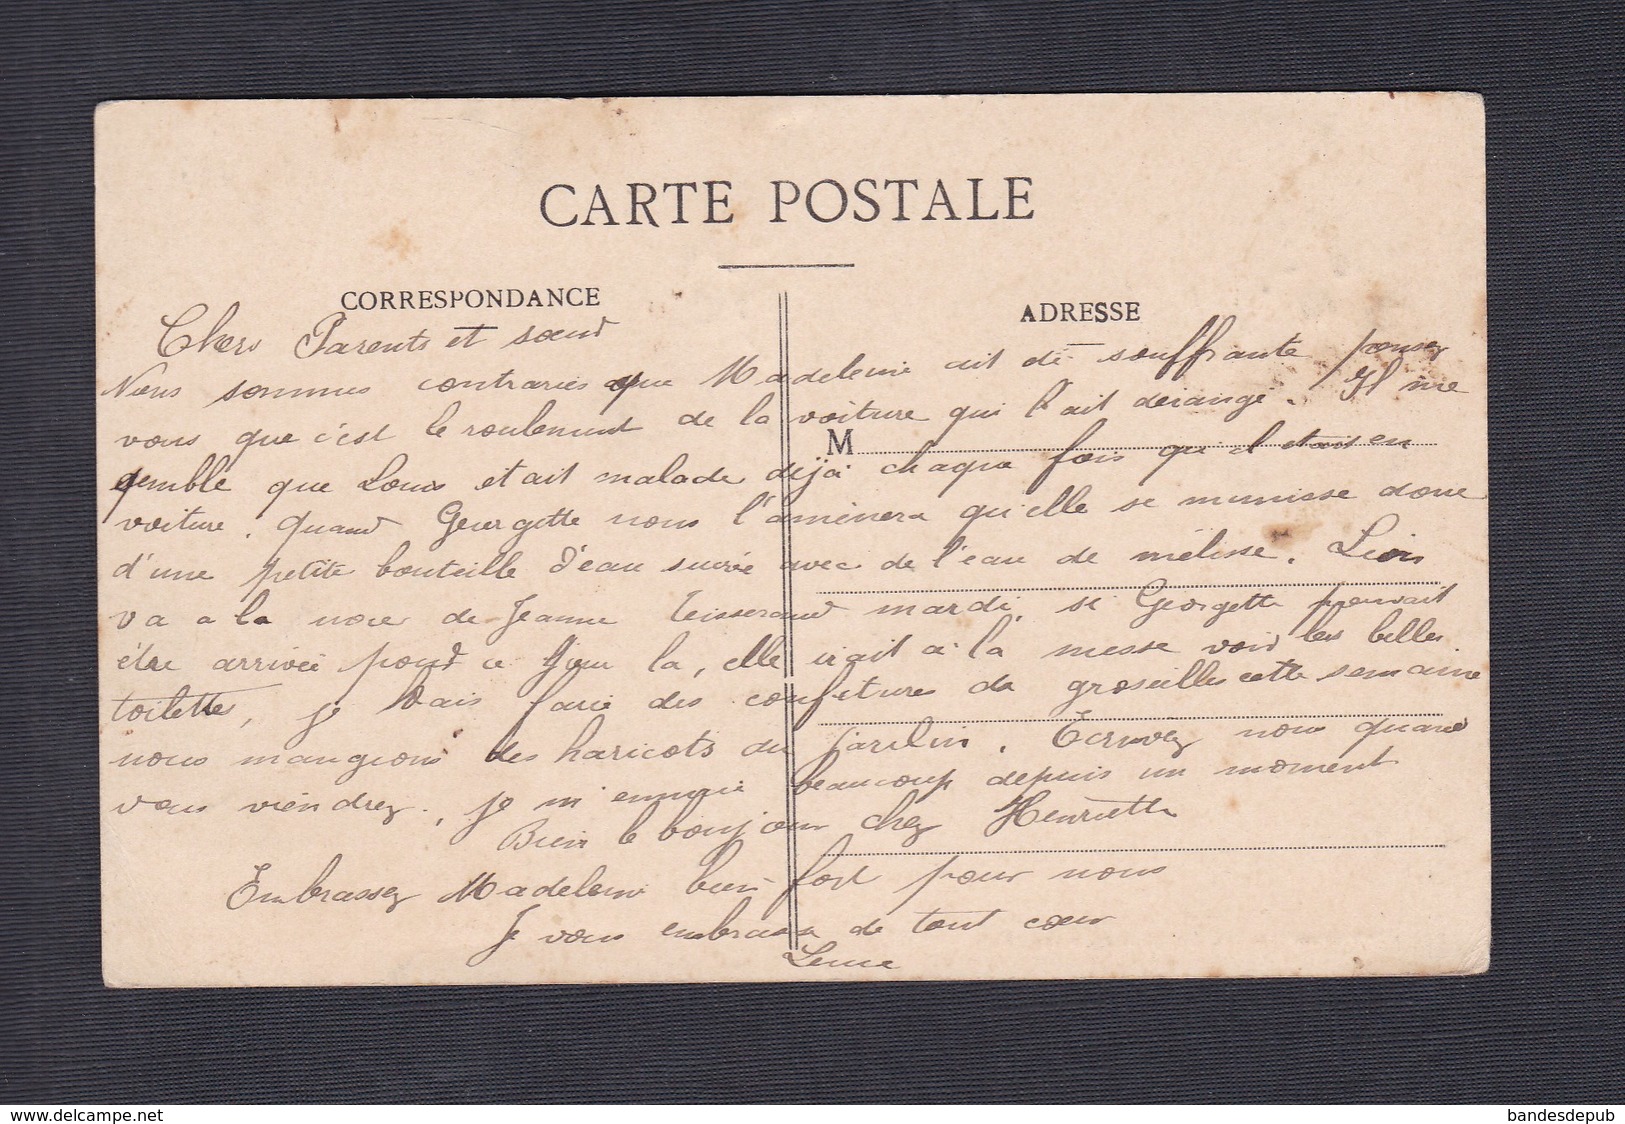 CARTE POSTALE
CORRESPONDANCE
ADRESSE
M
Chers Parents et sœur
Nous sommes contraries que Madeleine ait été souffrante pensez
vous que c'est le roulement de la voiture qui l'ait derangé. Il me
semble que Louis etait malade déjà chaque fois qu'il etait en
voiture. Quand Georgette nous l'amènera qu'elle se munisse donc
d'une petite bouteille d'eau sucrée avec de l'eau de mélisse. Léon
va a la noce de Jeanne Teisserand mardi, si Georgette pouvait
être arrivée pour ce jour la, elle irait a la messe voir les belles
toilettes, je vais faire des confitures de groseilles cette semaine
nous mangeons des haricots du jardin. Ecrivez nous quand
vous viendrez, je m'ennuie beaucoup depuis un moment
Bien le bonjour chez Henriette
Embrassez Madeleine bien fort pour nous
Je vous embrasse de tout cœur
www.delcampe.net
bandesdepub